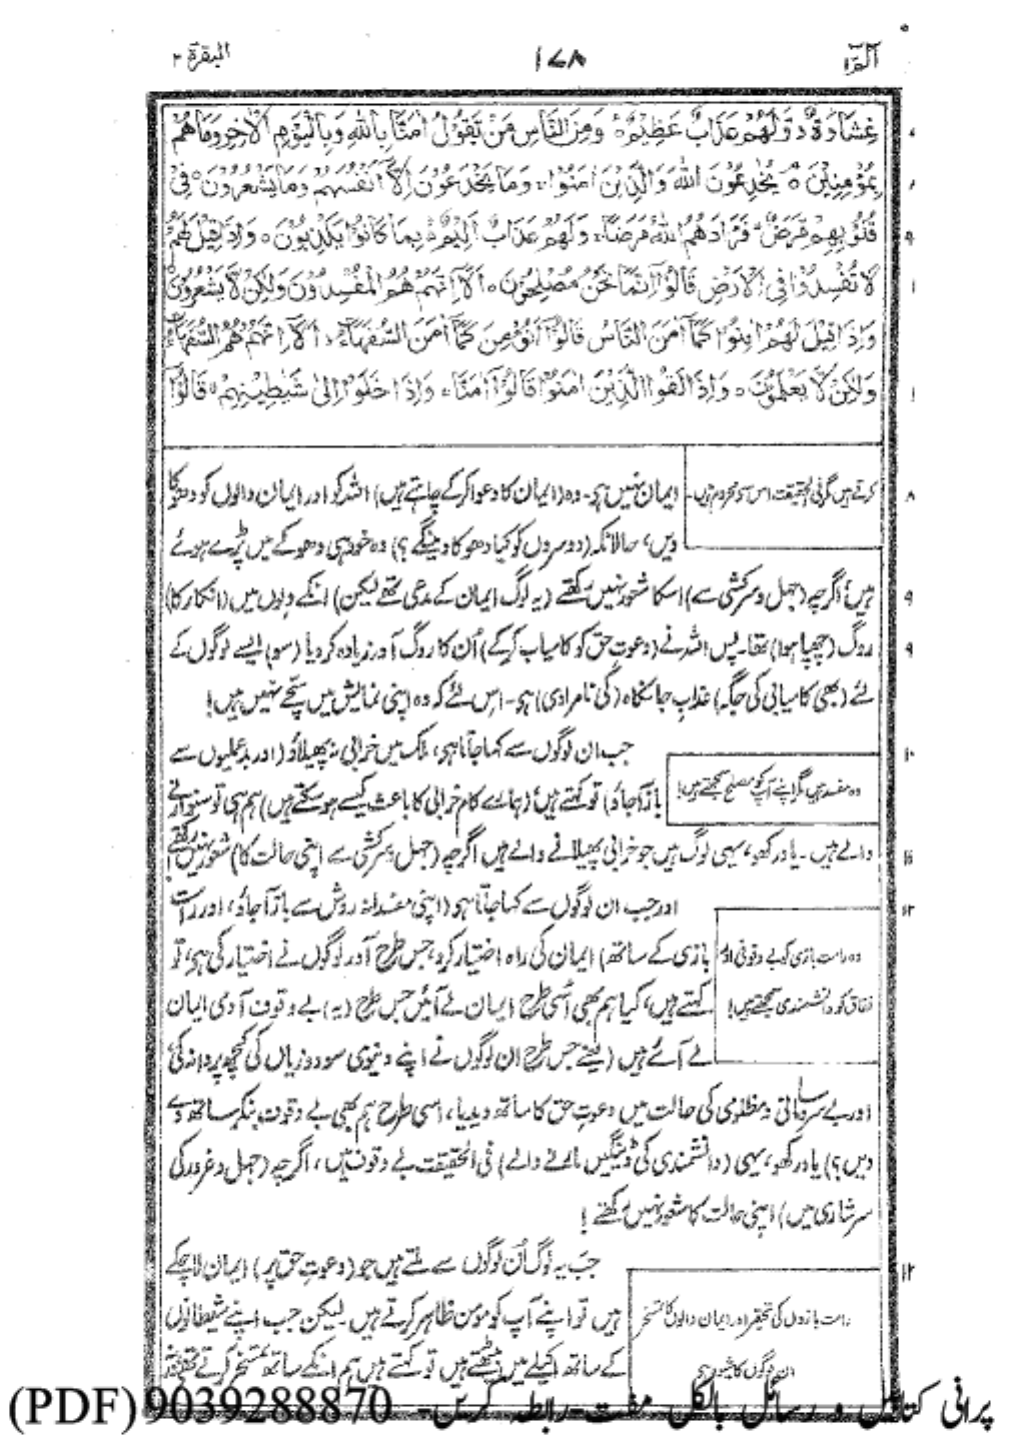 الٓمٓ ١
١٧٨
البقرة ٢
غِشَاوَةٌ وَّلَهُمْ عَذَابٌ عَظِيْمٌ ۝ وَمِنَ النَّاسِ مَنْ يَّقُوْلُ اٰمَنَّا بِاللّٰهِ وَبِالْيَوْمِ الْاٰخِرِ وَمَا هُمْ
بِمُؤْمِنِيْنَ ۝ يُخٰدِعُوْنَ اللّٰهَ وَالَّذِيْنَ اٰمَنُوْا، وَمَا يَخْدَعُوْنَ اِلَّآ اَنْفُسَهُمْ وَمَا يَشْعُرُوْنَ ۝ فِيْ
قُلُوْبِهِمْ مَّرَضٌ فَزَادَهُمُ اللّٰهُ مَرَضًا، وَلَهُمْ عَذَابٌ اَلِيْمٌۢ بِمَا كَانُوْا يَكْذِبُوْنَ ۝ وَاِذَا قِيْلَ لَهُمْ
لَا تُفْسِدُوْا فِي الْاَرْضِ قَالُوْٓا اِنَّمَا نَحْنُ مُصْلِحُوْنَ ۝ اَلَآ اِنَّهُمْ هُمُ الْمُفْسِدُوْنَ وَلٰكِنْ لَّا يَشْعُرُوْنَ
وَاِذَا قِيْلَ لَهُمْ اٰمِنُوْا كَمَآ اٰمَنَ النَّاسُ قَالُوْٓا اَنُؤْمِنُ كَمَآ اٰمَنَ السُّفَهَآءُ، اَلَآ اِنَّهُمْ هُمُ السُّفَهَآءُ
وَلٰكِنْ لَّا يَعْلَمُوْنَ ۝ وَاِذَا لَقُوا الَّذِيْنَ اٰمَنُوْا قَالُوْٓا اٰمَنَّا، وَاِذَا خَلَوْا اِلٰى شَيٰطِيْنِهِمْ قَالُوْٓا
کرتے ہیں مگر فی الحقیقت اس سے محروم ہیں۔
ایمان نہیں ہے۔ وہ (ایمان کا دعوا کرکے چاہتے ہیں) اللہ کو اور ایمان والوں کو دھوکا
دیں، حالانکہ (دوسروں کو کیا دھوکا دینگے؟) وہ خود ہی دھوکے میں پڑے ہوئے
ہیں، اگرچہ (جہل و سرکشی سے) اسکا شعور نہیں رکھتے (یہ لوگ ایمان کے مدعی تھے لیکن) انکے دلوں میں (انکار کا)
روگ (چھپا ہوا) تھا۔ پس اللہ نے (دعوتِ حق کو کامیاب کرکے) اُن کا روگ اَور زیادہ کر دیا (سو) ایسے لوگوں کے
لئے (بھی کامیابی کی جگہ) عذابِ جانکاہ (کی نامرادی) ہے۔ اس لئے کہ وہ اپنی نمایش میں سچے نہیں ہیں!
جب ان لوگوں سے کہا جاتا ہے، ملک میں خرابی نہ پھیلاؤ (اور بدعملیوں سے
وہ مفسد ہیں مگر اپنے آپ کو مصلح سمجھتے ہیں!
باز آجاؤ) تو کہتے ہیں، (ہمارے کام خرابی کا باعث کیسے ہو سکتے ہیں) ہم ہی تو سنوارنے
والے ہیں۔ یاد رکھو، یہی لوگ ہیں جو خرابی پھیلانے والے ہیں اگرچہ (جہل و سرکشی سے اپنی حالت کا) شعور نہیں رکھتے
اور جب ان لوگوں سے کہا جاتا ہے (اپنی مفسدانہ روش سے باز آجاؤ، اور راست
وہ راست بازی کو بے وقوفی اور
بازی کے ساتھ) ایمان کی راہ اختیار کرو، جس طرح اَور لوگوں نے اختیار کی ہے، تو
نفاق کو دانشمندی سمجھتے ہیں!
کہتے ہیں، کیا ہم بھی اُسی طرح ایمان لے آئیں جس طرح (یہ) بے وقوف آدمی ایمان
لے آئے ہیں (یعنے جس طرح ان لوگوں نے اپنے دنیوی سود و زیاں کی کچھ پروا نہ کی
اور بے سروسامانی و مظلومی کی حالت میں دعوتِ حق کا ساتھ دیدیا، اسی طرح ہم بھی بے وقوف بنکر ساتھ دے
دیں؟) یاد رکھو، یہی (دانشمندی کی ڈینگیں مارنے والے) فی الحقیقت بے وقوف ہیں، اگرچہ (جہل و غرور کی
سرشاری میں) اپنی حالت کا شعور نہیں رکھتے!
جب یہ لوگ اُن لوگوں سے ملتے ہیں جو (دعوتِ حق پر) ایمان لا چکے
راست بازوں کی تحقیر اور ایمان والوں کا تمسخر
ہیں تو اپنے آپ کو مومن ظاہر کرتے ہیں۔ لیکن جب اپنے شیطانوں
ان لوگوں کا شیوہ ہے
کے ساتھ اکیلے میں بیٹھتے ہیں تو کہتے ہیں ہم انکے ساتھ تمسخر کرتے
پرانی کتابیں و رسائل بالکل مفت۔ رابطہ کریں۔ 9039288870 (PDF)